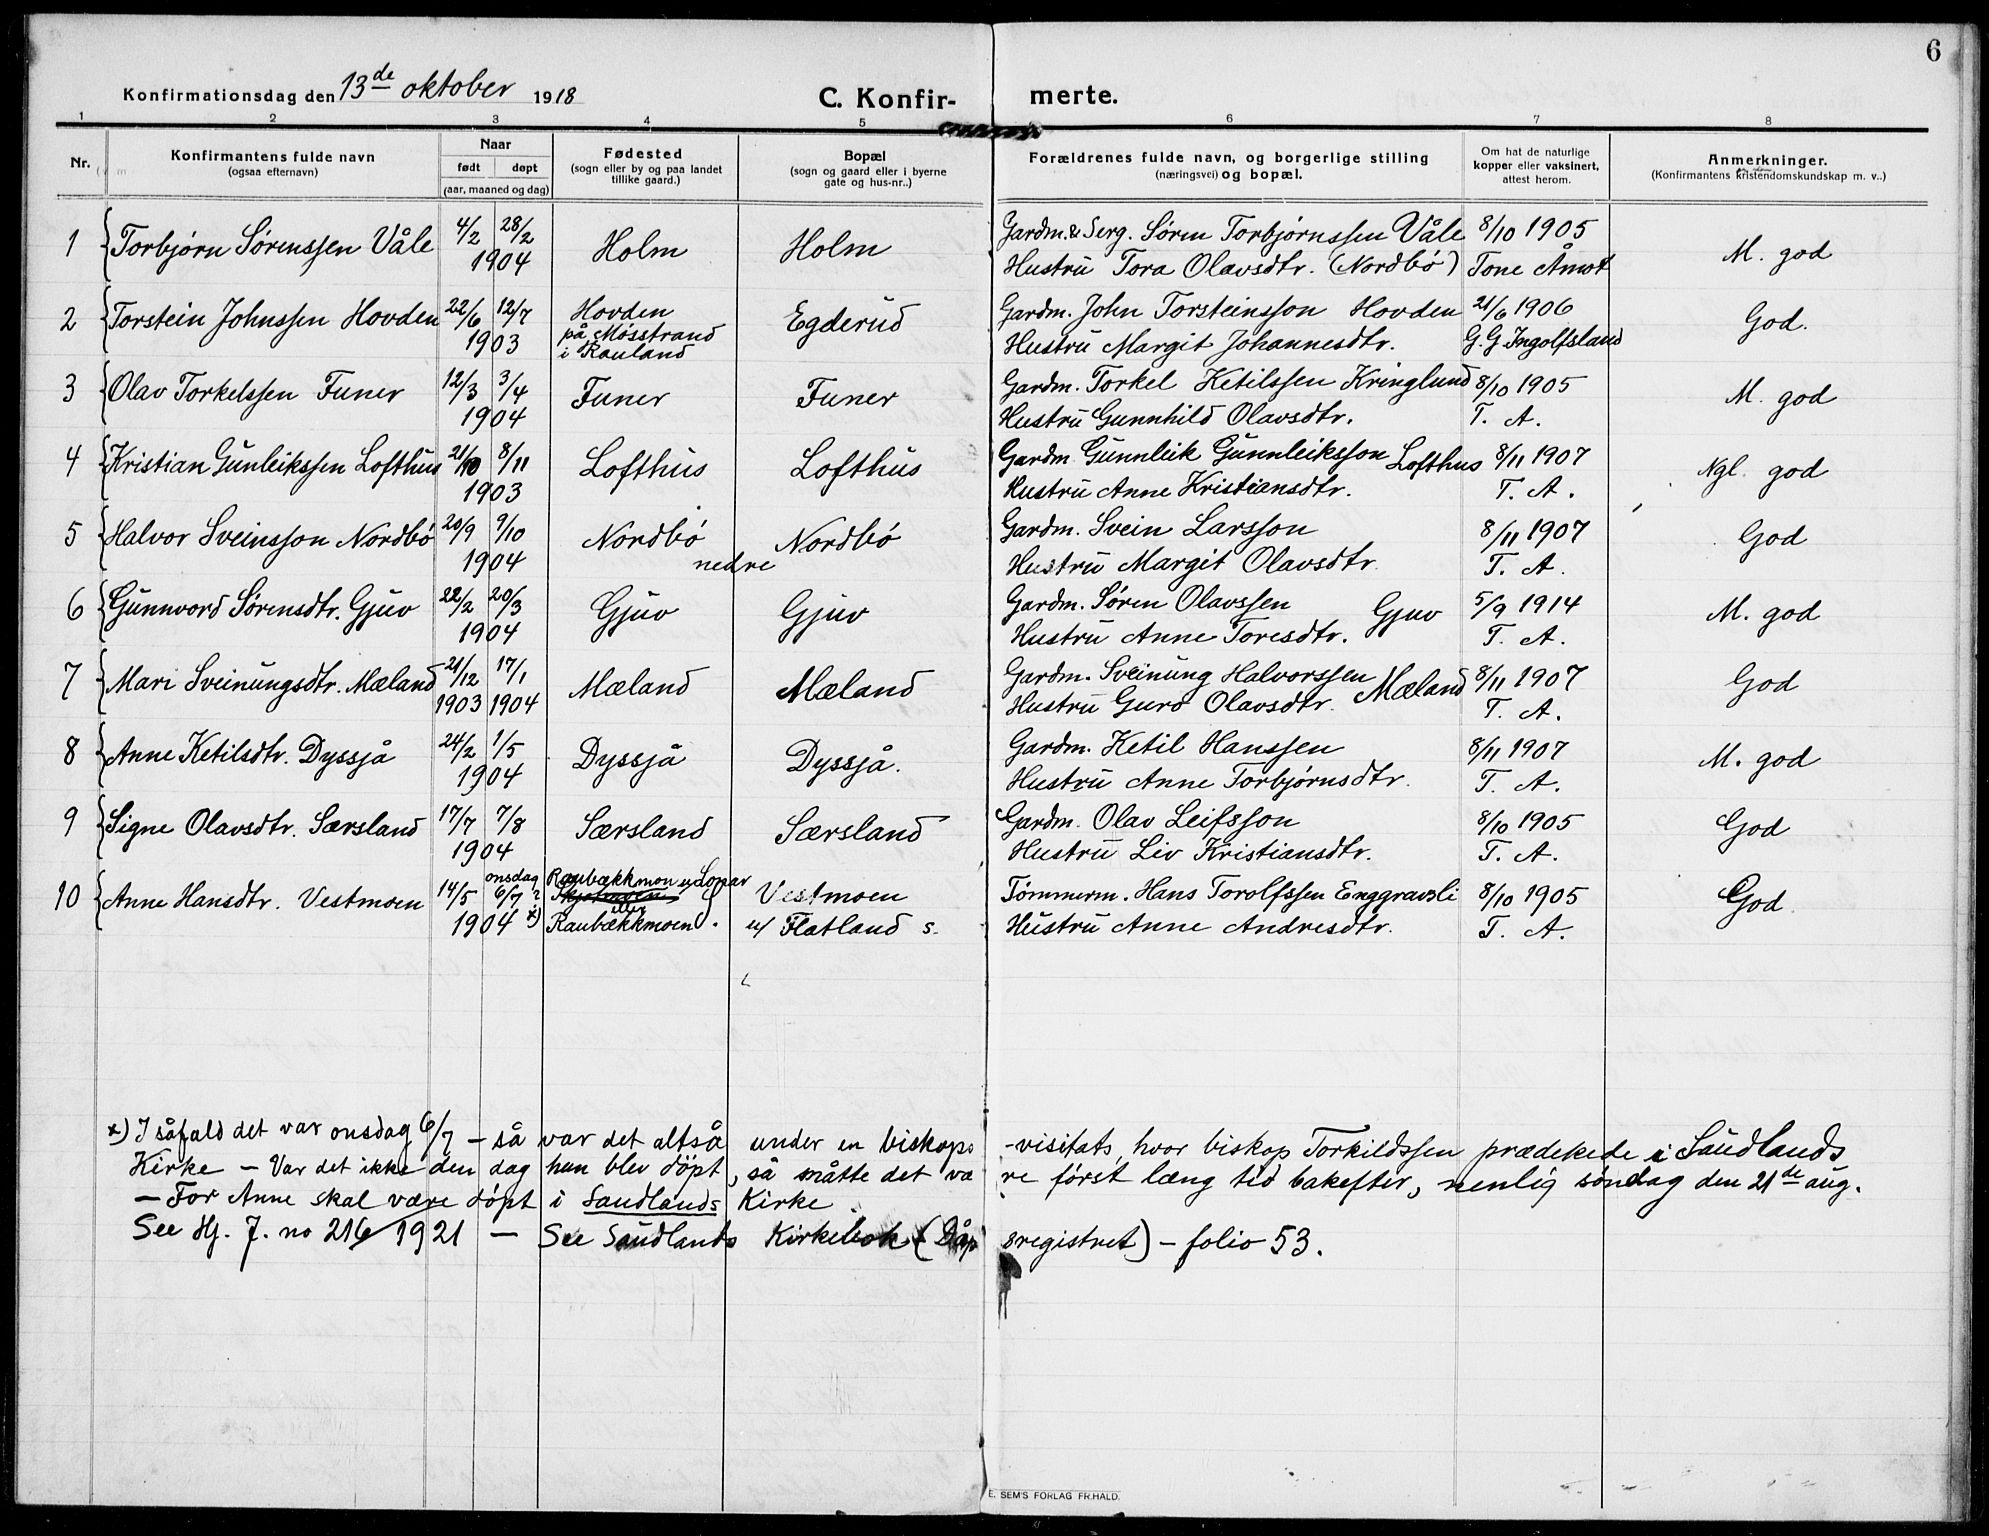 6
Konfirmationsdag den 13de oktober 1918
C. Konfir- merte.
1 2 3 4 5 6 7 8
Nr.
Konfirmantens fulde navn
(ogsaa efternavn)
Naar
født døpt
(aar, maaned og dag)
Fødested
(sogn eller by og paa landet
tillike gaard.)
Bopæl
(sogn og gaard eller i byerne
gate og hus-nr..)
Forældrenes fulde navn, og borgerlige stilling
(næringsvei) og bopæl.
Om hat de naturlige
kopper eller vaksinert,
attest herom.
Anmerkninger.
(Konfirmantens kristendomskundskap m. v..)
1 Torbjørn Sørenssen Våle 4/2 28/2 1904 Holm Holm Gardm. & Serg. Søren Torbjørnssen Våle 8/10 1905 M. god
Hustru Tora Olavsdtr. (Nordbö) Tone Åmot
2 Torstein Johnssen Hovden 22/6 12/7 1903 Hovden Egderud Gardm. John Torsteinsson Hovden 21/6 1906 God.
på Møsstrand
i Rauland Hustru Margit Johannesdtr. G. G. Ingolfsland
3 Olav Torkelssen Funer 12/3 3/4 1904 Funer Funer Gardm. Torkel Ketilssen Kringlund 8/10 1905 M. god
Hustru Gunnhild Olavsdtr. T. A.
4 Kristian Gunleikssen Lofthus 21/10 8/11 1903 Lofthus Lofthus Gardm. Gunnleik Gunnleiksson Lofthus 8/11 1907 Ngl. god
Hustru Anne Kristiansdtr. T. A.
5 Halvor Sveinsson Nordbö 20/9 9/10 1904 Nordbö nedre Nordbö Gardm. Svein Larsson 8/11 1907 God
Hustru Margit Olavsdtr. T. A.
6 Gunnvord Sørensdtr. Gjuv 22/2 20/3 1904 Gjuv Gjuv Gardm. Søren Olavssen Gjuv 5/9 1914 M. god
Hustru Anne Toresdtr. T. A.
7 Mari Sveinungsdtr. Mæland 21/12 1903 17/1 1904 Mæland Mæland Gardm. Sveinung Halvorssen Mæland 8/11 1907 God
Hustru Guro Olavsdtr. T. A.
8 Anne Ketilsdtr. Dyssjå 24/2 1/5 1904 Dyssjå Dyssjå. Gardm. Ketil Hanssen 8/11 1907 M. god
Hustru Anne Torbjørnsdtr. T. A.
9 Signe Olavsdtr. Særsland 17/7 7/8 1904 Særsland Særsland Gardm. Olav Leifsson 8/10 1905 God
Hustru Liv Kristiansdtr. T. A.
10 Anne Hansdtr. Vestmoen 14/5 onsdag 6/7 ? 1904 x) Raubækkmon u/ Vestmoen Tømmerm. Hans Torolfssen Enggravsli 8/10 1905 God
eller
Raubækkmoen. u/ Flatland s. Hustru Anne Andresdtr. T. A.
x) I såfald det var onsdag 6/7 – så var det altså under en biskops -visitats, hvor biskop Torkildssen prædekede i Saudlands
Kirke – Var det ikke den dag hun blev döpt, så måtte det va re först læng tid bakefter, nenlig söndag den 21de aug.
– For Anne skal være döpt i Saudlands Kirke
See Hj. J. no 216/1921 – See Saudlands Kirkebok (Dåp sregistret) – folio 53.
E. SEM'S FORLAG FR.HALD.